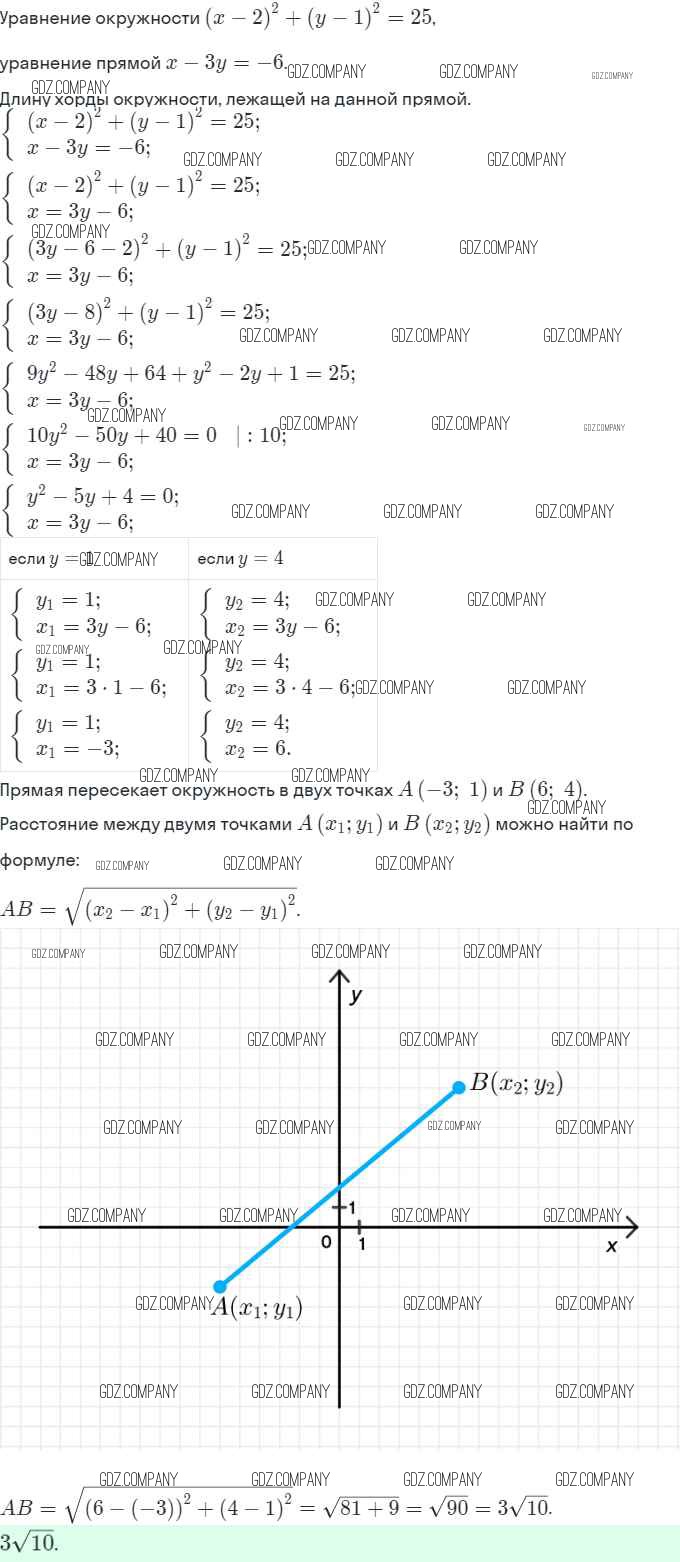 Уравнение окружности (x − 2)² + (y − 1)² = 25,
уравнение прямой x − 3y = −6.
GDZ.COMPANY GDZ.COMPANY GDZ.COMPANY
GDZ.COMPANY
Длину хорды окружности, лежащей на данной прямой.
{ (x − 2)² + (y − 1)² = 25;
x − 3y = −6;
GDZ.COMPANY GDZ.COMPANY GDZ.COMPANY
{ (x − 2)² + (y − 1)² = 25;
x = 3y − 6;
GDZ.COMPANY
{ (3y − 6 − 2)² + (y − 1)² = 25; GDZ.COMPANY GDZ.COMPANY
x = 3y − 6;
{ (3y − 8)² + (y − 1)² = 25;
x = 3y − 6; GDZ.COMPANY GDZ.COMPANY GDZ.COMPANY
{ 9y² − 48y + 64 + y² − 2y + 1 = 25;
x = 3y − 6;
GDZ.COMPANY GDZ.COMPANY GDZ.COMPANY GDZ.COMPANY
{ 10y² − 50y + 40 = 0 | : 10;
x = 3y − 6;
{ y² − 5y + 4 = 0;
x = 3y − 6;
GDZ.COMPANY GDZ.COMPANY GDZ.COMPANY
если y = 1 GDZ.COMPANY если y = 4
{ y₁ = 1; { y₂ = 4; GDZ.COMPANY GDZ.COMPANY
x₁ = 3y − 6; x₂ = 3y − 6;
GDZ.COMPANY GDZ.COMPANY
{ y₁ = 1; { y₂ = 4;
x₁ = 3 · 1 − 6; x₂ = 3 · 4 − 6; GDZ.COMPANY GDZ.COMPANY
{ y₁ = 1; { y₂ = 4;
x₁ = −3; x₂ = 6.
GDZ.COMPANY GDZ.COMPANY
Прямая пересекает окружность в двух точках A (−3; 1) и B (6; 4).
GDZ.COMPANY
Расстояние между двумя точками A (x₁; y₁) и B (x₂; y₂) можно найти по
формуле: GDZ.COMPANY GDZ.COMPANY GDZ.COMPANY
AB = √((x₂ − x₁)² + (y₂ − y₁)²).
GDZ.COMPANY GDZ.COMPANY GDZ.COMPANY GDZ.COMPANY
y
GDZ.COMPANY GDZ.COMPANY GDZ.COMPANY GDZ.COMPANY
B(x₂; y₂)
GDZ.COMPANY GDZ.COMPANY GDZ.COMPANY GDZ.COMPANY
1
GDZ.COMPANY GDZ.COMPANY GDZ.COMPANY GDZ.COMPANY
0 1 x
GDZ.COMPANY A(x₁; y₁) GDZ.COMPANY GDZ.COMPANY
GDZ.COMPANY GDZ.COMPANY GDZ.COMPANY GDZ.COMPANY
GDZ.COMPANY GDZ.COMPANY GDZ.COMPANY GDZ.COMPANY
AB = √((6 − (−3))² + (4 − 1)²) = √(81 + 9) = √90 = 3√10.
3√10.